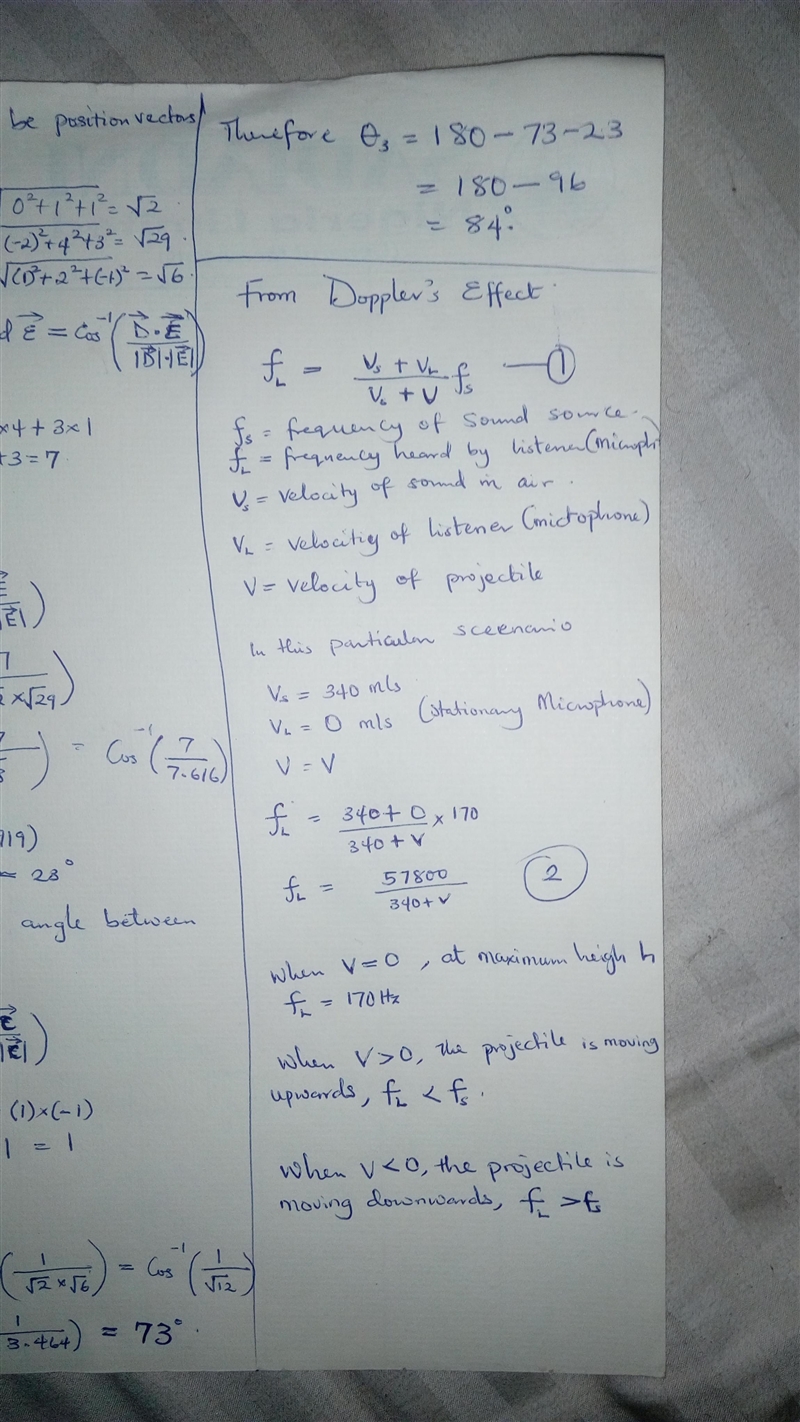 be position vectors
√0²+1²+1² = √2
√(-2)²+4²+3² = √29
√(1)²+2²+(-1)² = √6
d E⃗ = Cos⁻¹(D⃗·E⃗/|D⃗|·|E⃗|)
×4 + 3×1
+3 = 7
E⃗
|E⃗|)
7
×√29)
) = Cos⁻¹(7/7.616)
719)
≈ 23°
angle between
E⃗
|E⃗|)
(1)×(-1)
1 = 1
(1/√2×√6) = Cos⁻¹(1/√12)
1/3.464) = 73°.
Therefore θ₃ = 180 - 73 - 23
= 180 - 96
= 84°.
From Doppler's Effect
f_L = (V_s + V_L)/(V_s + V) f_s — ①
f_s = frequency of sound source.
f_L = frequency heard by listener (microph
V_s = velocity of sound in air.
V_L = velocitiy of listener (mictophone)
V = velocity of projectile
In this particular sceenario
V_s = 340 m/s
V_L = 0 m/s (stationary Microphone)
V = V
f_L = (340 + 0)/(340 + V) × 170
f_L = 57800/(340+V) ②
When V = 0, at maximum heigh h
f_L = 170 Hz
When V > 0, the projectile is moving
upwards, f_L < f_s.
When V < 0, the projectile is
moving downwards, f_L > f_s